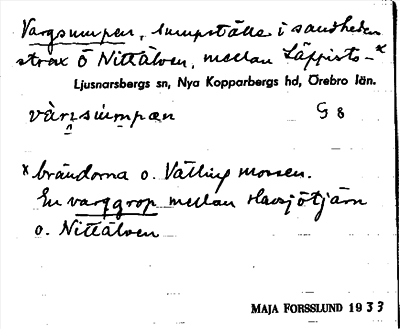 Vargsumpen, sumpställe i sandheden
strax Ö Nittälven, mellan Läppisto-x
Ljusnarsbergs sn, Nya Kopparbergs hd, Örebro län.
G 8
x brändorna o. Vätling mossen.
En varggrop mellan Havsjötjärn
o. Nittälven
MAJA FORSSLUND 1933